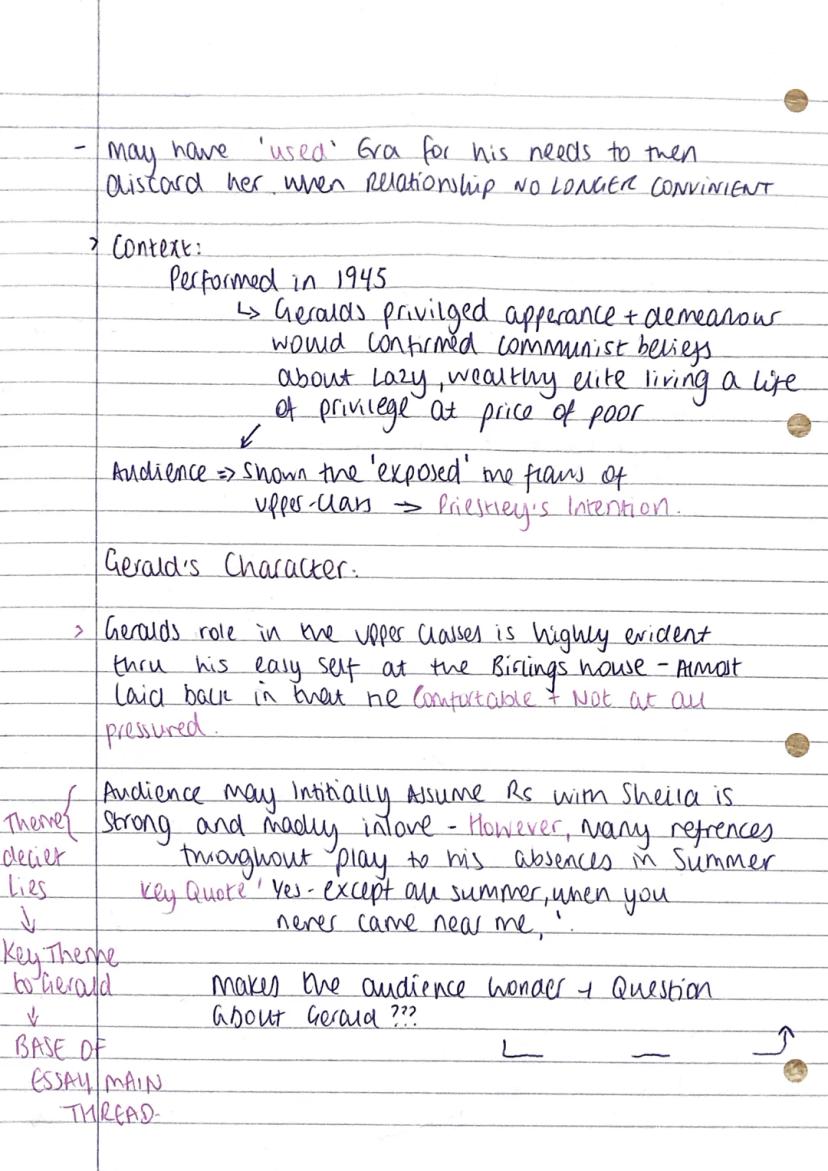 - May have 'used' Eva for his needs to then
discard her when Relationship NO LONGER CONVINIENT
> Context:
Performed in 1945
↳ Geralds privilged apperance + demeanour
would confirmed communist beliefs
about Lazy, wealthy elite living a life
of privilege at price of poor
↙
Audience => Shown the 'exposed' the flaws of
upper-class → Priestley's Intention.
Gerald's Character.
> Geralds role in the upper classes is highly evident
thru his easy self at the Birlings house - Almost
laid back in that he Comfortable + Not at all
pressured.
Audience may Intitially Assume Rs with Sheila is
Strong and madly inlove - However, Many refrences
throughout play to his absences in Summer
Key Quote ' Yes - except all summer, when you
never came near me, '.
Makes the audience wonder + Question
about Gerald ???
Theme
deciet
Lies
↓
Key Theme
to Gerald
↓
BASE OF
ESSAY MAIN
THREAD.